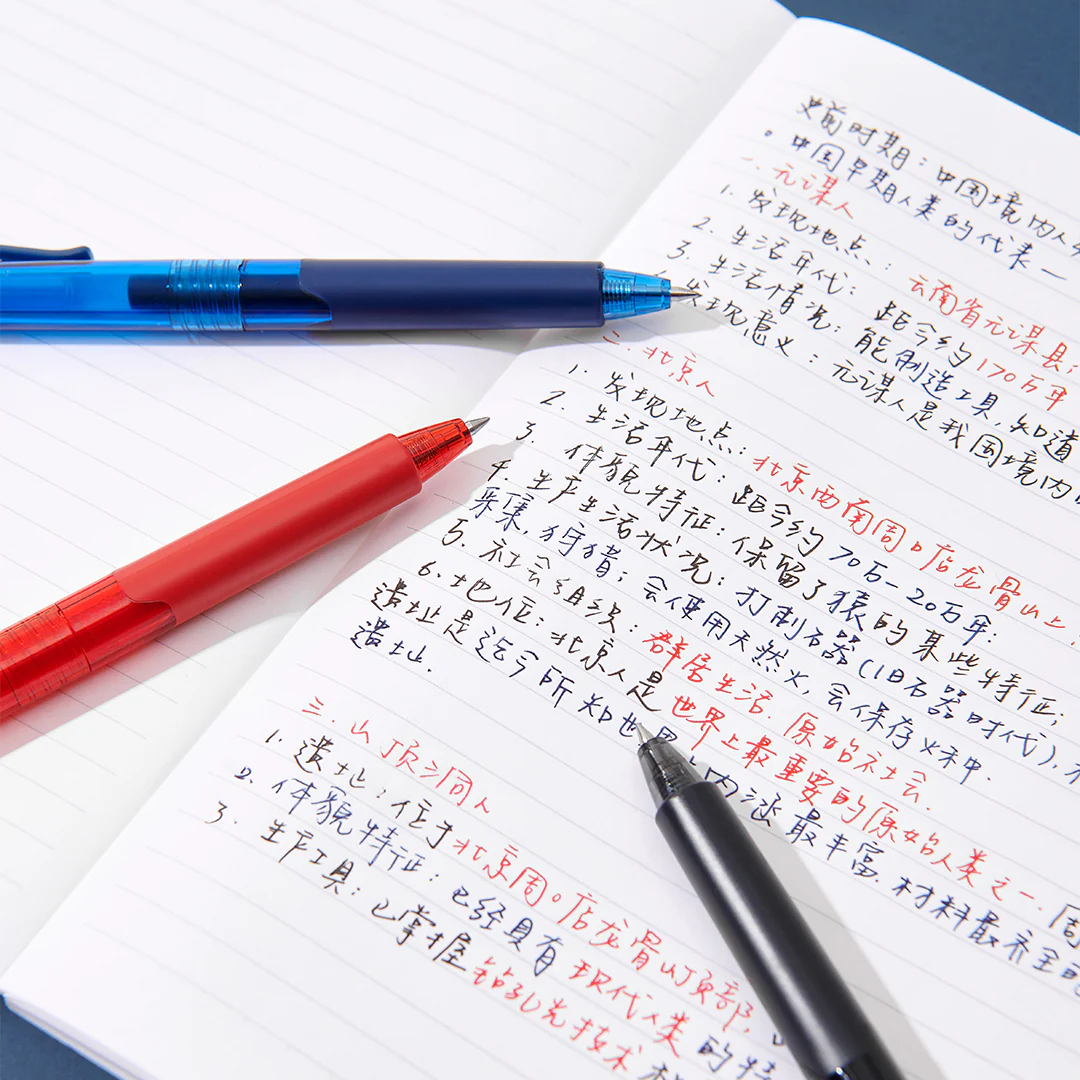 史前时期：中国境内人
。中国早期人类的代表一
一.元谋人
1.发现地点：云南省元谋县；
2.生活年代：距今约170万年
3.生活情况：能制造工具,知道
发现意义：元谋人是我国境内
二.北京人
1.发现地点：北京西南周口店龙骨山上
2.生活年代：距今约70万-20万年；
3.体貌特征：保留了猿的某些特征；
4.生产生活状况：打制石器(旧石器时代),
采集,狩猎；会使用天然火,会保存火种.
5.社会组织：群居生活.原始社会.
6.地位：北京人是世界上最重要的原始人类之一.周
遗址是迄今所知世界内涵最丰富.材料最齐全的
遗址.
三.山顶洞人
1.遗址：位于北京周口店龙骨山顶部,
2.体貌特征：已经具有现代人类的特
3.生产工具：已掌握钻孔技术